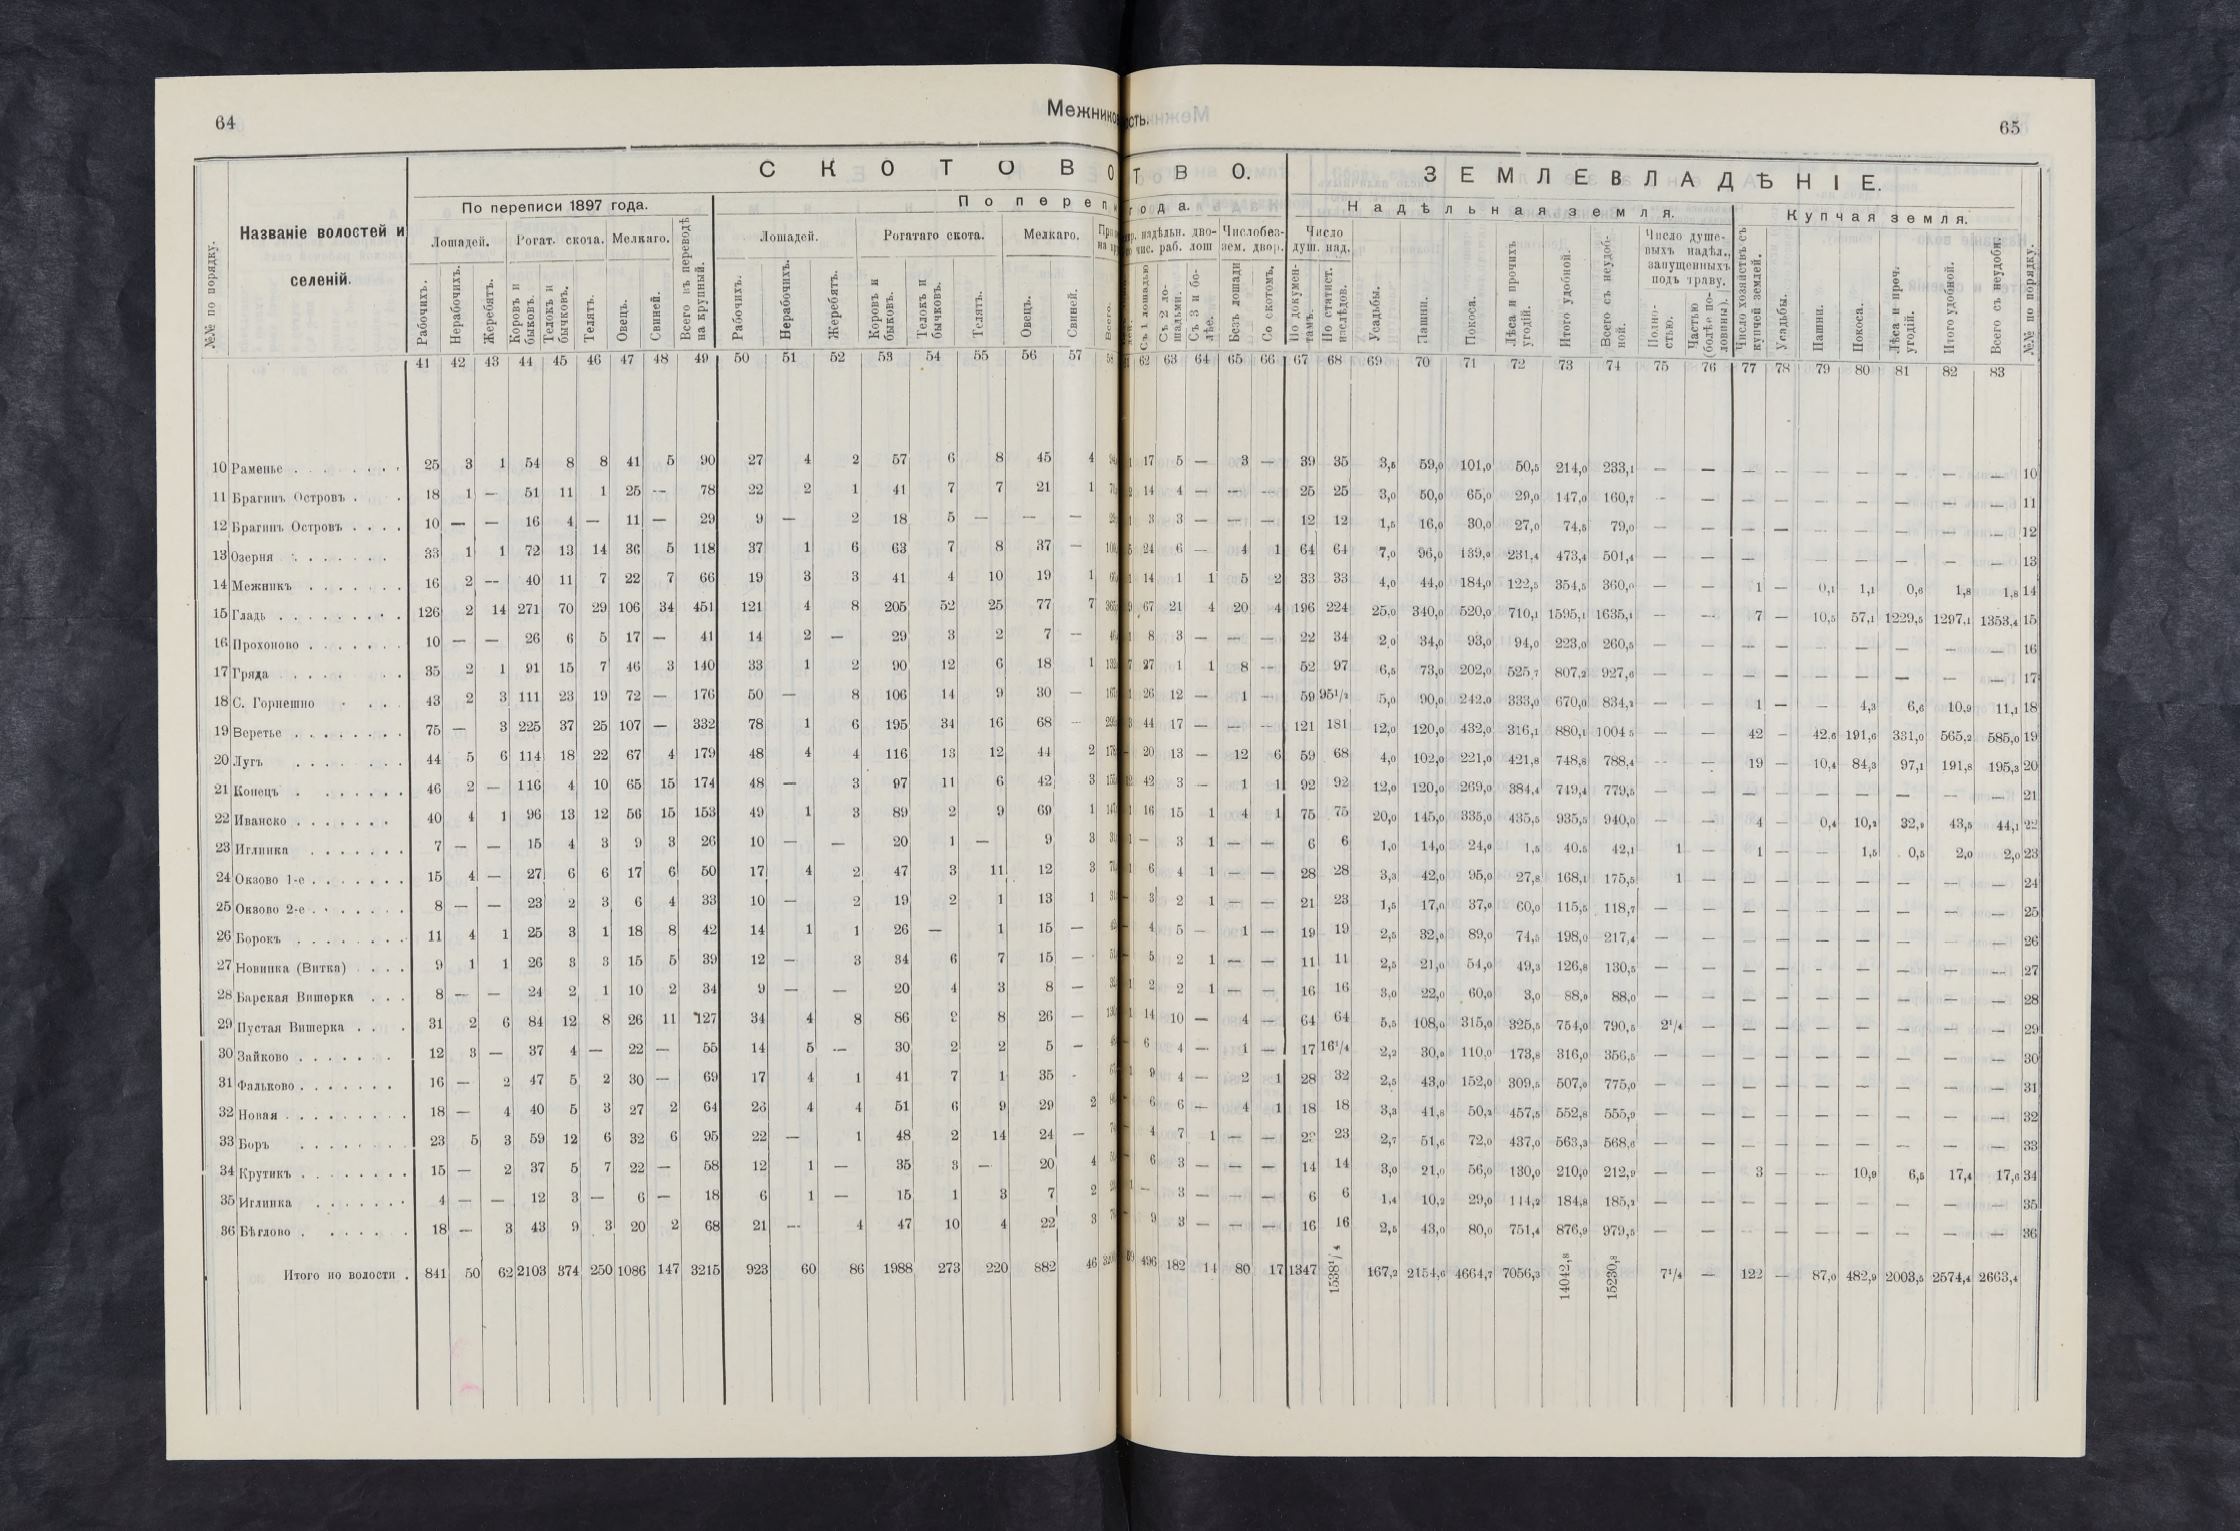 64
Межников
СКОТОВО
№№ по порядку.
Названіе волостей и селеній.
По переписи 1897 года.
По переп
Лошадей. Рогат. скота. Мелкаго.
Лошадей. Рогатаго скота. Мелкаго.
Рабочихъ. Нерабочихъ. Жеребятъ. Коровъ и быковъ. Телокъ и бычковъ. Телятъ. Овецъ. Свиней. Всего въ переводѣ на крупный. Рабочихъ. Нерабочихъ. Жеребятъ. Коровъ и быковъ. Телокъ и бычковъ. Телятъ. Овецъ. Свиней. Всего.
41 42 43 44 45 46 47 48 49 50 51 52 53 54 55 56 57 58
10 Раменье 25 3 1 54 8 8 41 5 90 27 4 2 57 6 8 45 4
11 Брагинъ Островъ 18 1 — 51 11 1 25 — 78 22 2 1 41 7 7 21 1
12 Брагинъ Островъ 10 — — 16 4 — 11 — 29 9 — 2 18 5 — — —
13 Озерня 33 1 1 72 13 14 36 5 118 37 1 6 63 7 8 37 —
14 Межникъ 16 2 — 40 11 7 22 7 66 19 3 3 41 4 10 19 1
15 Гладь 126 2 14 271 70 29 106 34 451 121 4 8 205 52 25 77 7
16 Прохоново 10 — — 26 6 5 17 — 41 14 2 — 29 3 2 7 —
17 Гряда 35 2 1 91 15 7 46 3 140 33 1 2 90 12 6 18 1
18 С. Горнешно 43 2 3 111 23 19 72 — 176 50 — 8 106 14 9 30 —
19 Веретье 75 — 3 225 37 25 107 — 332 78 1 6 195 34 16 68 —
20 Лугъ 44 5 6 114 18 22 67 4 179 48 4 4 116 13 12 44 2
21 Конецъ 46 2 — 116 4 10 65 15 174 48 — 3 97 11 6 42 3
22 Иванско 40 4 1 96 13 12 56 15 153 49 1 3 89 2 9 69 1
23 Иглинка 7 — — 15 4 3 9 3 26 10 — — 20 1 — 9 3
24 Окзово 1-е 15 4 — 27 6 6 17 6 50 17 4 2 47 3 11 12 3
25 Окзово 2-е 8 — — 23 2 3 6 4 33 10 — 2 19 2 1 13 1
26 Борокъ 11 4 1 25 3 1 18 8 42 14 1 1 26 — 1 15 —
27 Новинка (Витка) 9 1 1 26 3 3 15 5 39 12 — 3 34 6 7 15 —
28 Барская Вишерка 8 — — 24 2 1 10 2 34 9 — — 20 4 3 8 —
29 Пустая Вишерка 31 2 6 84 12 8 26 11 127 34 4 8 86 8 26 —
30 Зайково 12 3 — 37 4 — 22 — 55 14 5 — 30 2 2 5 —
31 Фальково 16 — 2 47 5 2 30 — 69 17 4 1 41 7 1 35 -
32 Новая 18 — 4 40 5 3 27 2 64 23 4 4 51 6 9 29 2
33 Боръ 23 5 3 59 12 6 32 6 95 22 — 1 48 2 14 24 —
34 Крутикъ 15 — 2 37 5 7 22 — 58 12 1 — 35 3 — 20 4
35 Иглинка 4 — — 12 3 — 6 — 18 6 1 — 15 1 3 7 2
36 Бѣглово 18 — 3 43 9 3 20 2 68 21 — 4 47 10 4 22 3
Итого по волости 841 50 62 2103 374 250 1086 147 3215 923 60 86 1988 273 220 882 46
ость.
65
ТВО.
ЗЕМЛЕВЛАДѢНІЕ.
года.
Надѣльная земля.
Купчая земля.
надѣльн. дво- чис. раб. лош
Число без- зем. двор.
Число душ. над.
Число душе- выхъ надѣл., запущенныхъ подъ траву.
Съ 1 лошадью Съ 2 ло- шадьми. Съ 3 и бо- лѣе. Безъ лошади Со скотомъ. По докумен- тамъ. По статист. изслѣдов. Усадьбы. Пашни. Покоса. Лѣса и прочихъ угодій. Итого удобной. Всего съ неудоб- ной. Полно- стью. Частью (болѣе по- ловины). Число хозяйствъ съ купчей землей. Усадьбы. Пашни. Покоса. Лѣса и проч. угодій. Итого удобной. Всего съ неудобн. №№ по порядку.
62 63 64 65 66 67 68 69 70 71 72 73 74 75 76 77 78 79 80 81 82 83
17 5 — 3 — 39 35 3,5 59,0 101,0 50,5 214,0 233,1 — — — — — — — — — 10
14 4 — — — 25 25 3,0 50,0 65,0 29,0 147,0 160,7 — — — — — — — — — 11
3 3 — — — 12 12 1,5 16,0 30,0 27,0 74,5 79,0 — — — — — — — — — 12
24 6 — 4 1 64 64 7,0 96,0 139,0 231,4 473,4 501,4 — — — — — — — — 13
14 1 1 5 2 33 33 4,0 44,0 184,0 122,5 354,5 360,0 — — 1 — 0,1 1,1 0,6 1,8 1,8 14
67 21 4 20 4 196 224 25,0 340,0 520,0 710,1 1595,1 1635,1 — — 7 — 10,5 57,1 1229,5 1297,1 1353,4 15
8 3 — — — 22 34 2,0 34,0 93,0 94,0 223,0 260,5 — — — — — — — — — 16
27 1 1 8 — 52 97 6,5 73,0 202,0 525,7 807,2 927,6 — — — — — — — — — 17
26 12 — 1 — 59 95 1/2 5,0 90,0 242,0 333,0 670,0 834,2 — — 1 — — 4,3 6,6 10,9 11,1 18
44 17 — — — 121 181 12,0 120,0 432,0 316,1 880,1 1004,5 — — 42 — 42,6 191,6 331,0 565,2 585,0 19
20 13 — 12 6 59 68 4,0 102,0 221,0 421,8 748,8 788,4 — — 19 — 10,4 84,3 97,1 191,8 195,3 20
42 3 — 1 1 92 92 12,0 120,0 269,0 384,4 749,4 779,5 — — — — — — — — — 21
16 15 1 4 1 75 75 20,0 145,0 335,0 435,5 935,5 940,0 — — 4 — 0,4 10,2 32,9 43,5 44,1 22
— 3 1 — — 6 6 1,0 14,0 24,0 1,5 40,5 42,1 1 — 1 — — 1,5 0,5 2,0 2,0 23
6 4 1 — — 28 28 3,3 42,0 95,0 27,8 168,1 175,5 1 — — — — — — — — 24
3 2 1 — — 21 23 1,5 17,0 37,0 60,0 115,5 118,7 — — — — — — — — — 25
4 5 — 1 — 19 19 2,5 32,0 89,0 74,5 198,0 217,4 — — — — — — — — — 26
5 2 1 — — 11 11 2,5 21,0 54,0 49,3 126,8 130,5 — — — — — — — — — 27
2 2 1 — — 16 16 3,0 22,0 60,0 3,0 88,0 88,0 — — — — — — — — — 28
14 10 — 4 — 64 64 5,5 108,0 315,0 325,5 754,0 790,5 2 1/4 — — — — — — — — 29
6 4 — 1 — 17 16 1/4 2,2 30,0 110,0 173,8 316,0 356,5 — — — — — — — — — 30
9 4 — 2 1 28 32 2,5 43,0 152,0 309,5 507,0 775,0 — — — — — — — — — 31
6 6 — 4 1 18 18 3,3 41,8 50,2 457,5 552,8 555,9 — — — — — — — — — 32
4 7 1 — — 22 23 2,7 51,6 72,0 437,0 563,3 568,6 — — — — — — — — — 33
6 3 — — — 14 14 3,0 21,0 56,0 130,0 210,0 212,9 — — 3 — — 10,9 6,5 17,4 17,6 34
— 3 — — — 6 6 1,4 10,2 29,0 144,2 184,8 185,2 — — — — — — — — — 35
9 3 — — — 16 16 2,5 43,0 80,0 751,4 876,9 979,5 — — — — — — — — — 36
496 182 14 80 17 1347 1538 1/4 167,2 2154,6 4664,7 7056,3 14042,8 15230,8 7 1/4 — 122 — 87,0 482,9 2003,5 2574,4 2663,4